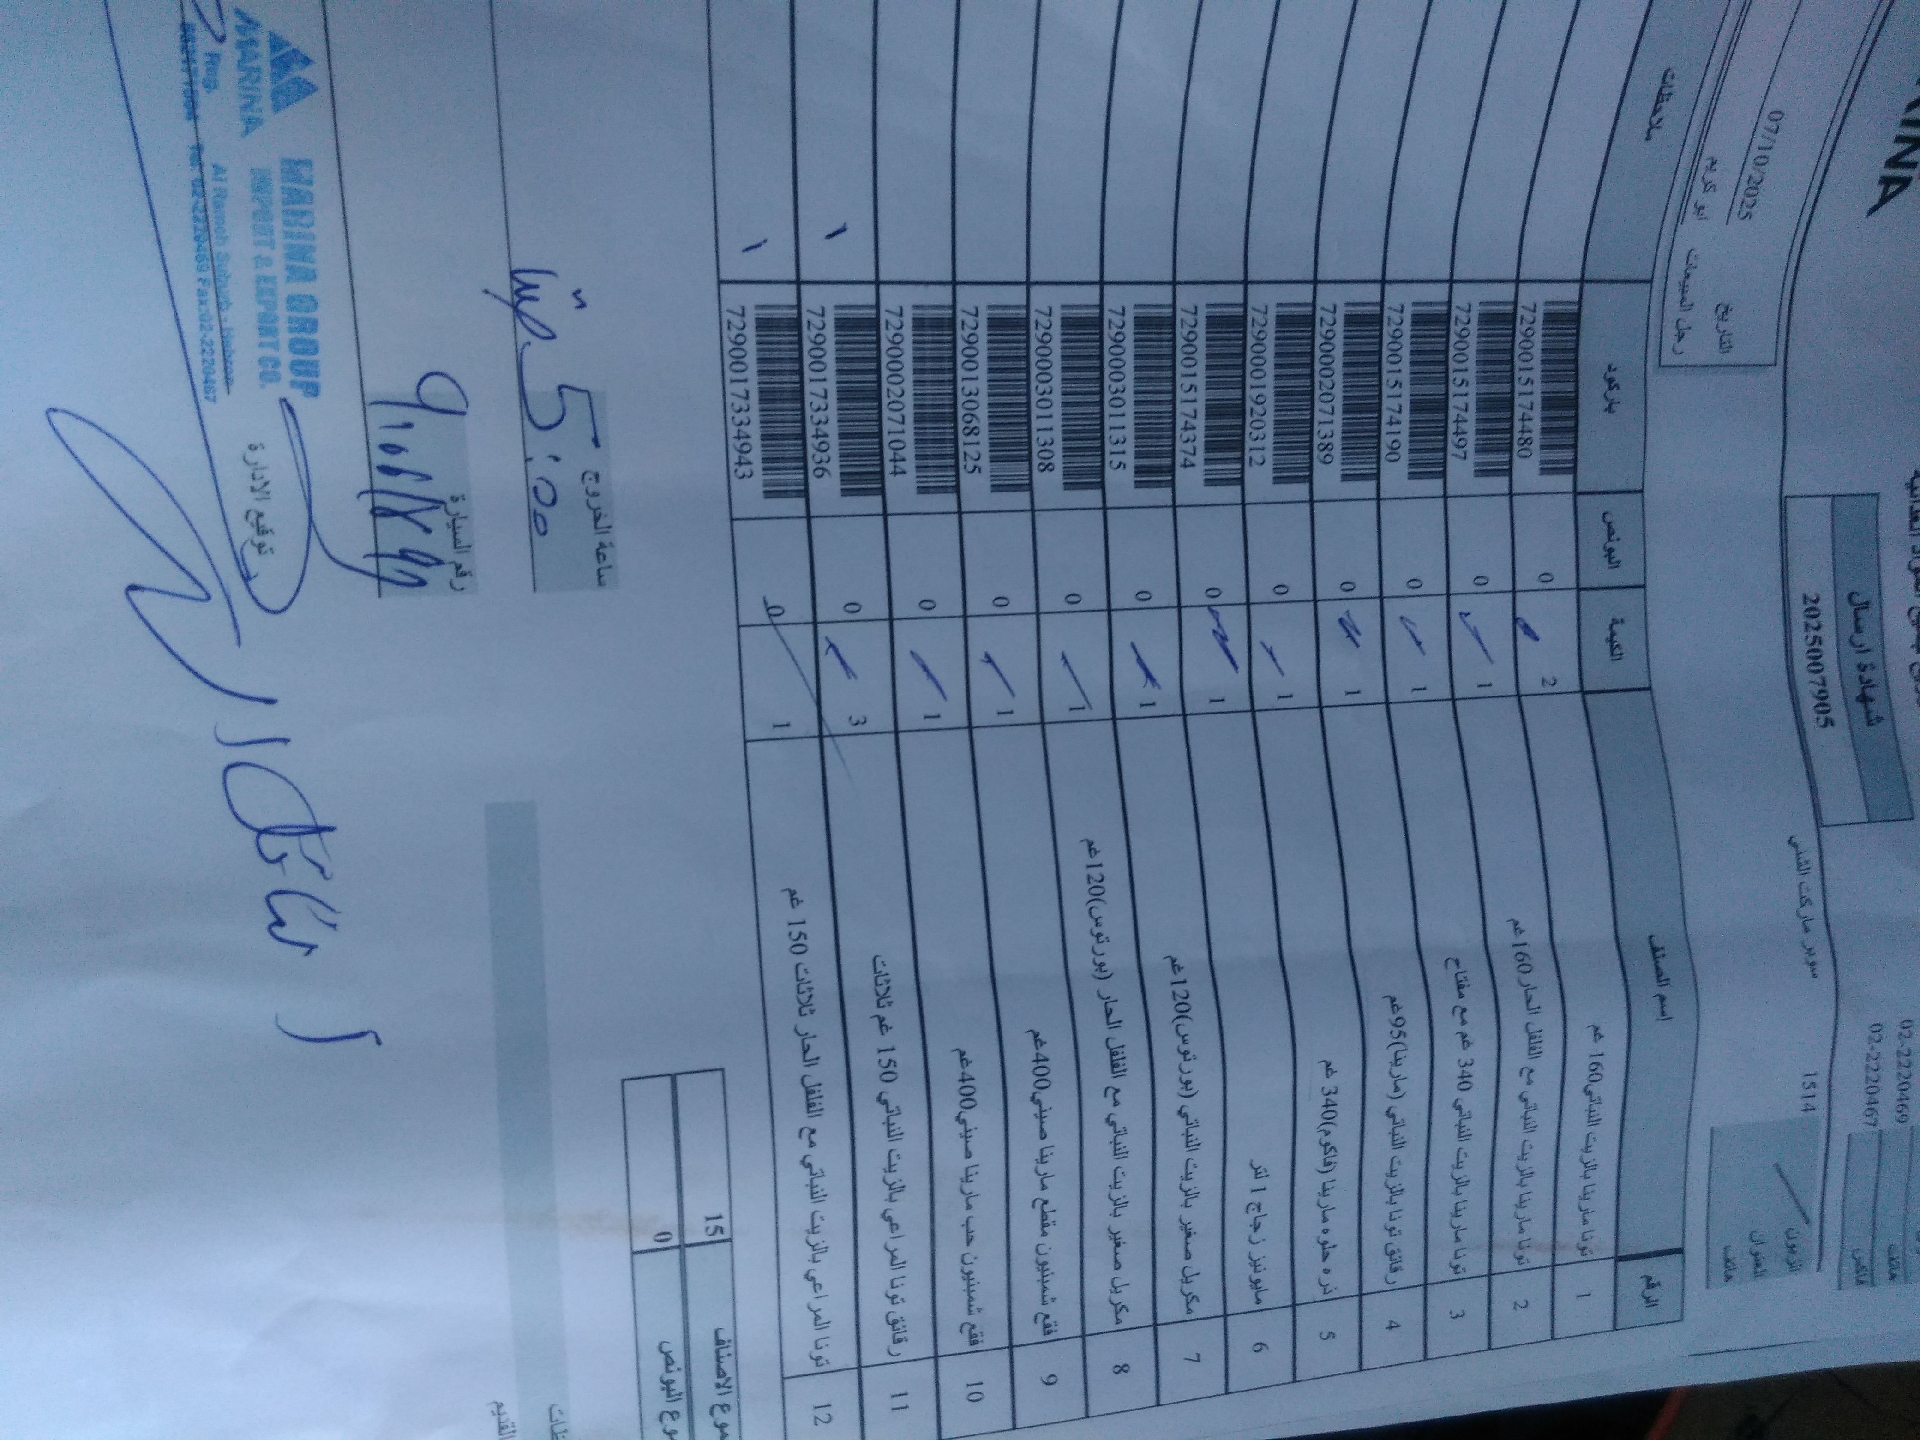 02-2220469 هاتف
02-2220467 فاكس
شهادة ارسال
2025007905
الزبون 1514 سوبر ماركت التقى
العنوان
هاتف
التاريخ 07/10/2025
رجل المبيعات ابو كريم
الرقم إسم الصنف الكمية البونص باركود ملاحظات
1 تونا مارينا بالزيت النباتي 160 غم 2 0 7290015174480
2 تونا مارينا بالزيت النباتي مع الفلفل الحار 160غم 1 0 7290015174497
3 تونا مارينا بالزيت النباتي 340 غم مع مفتاح 1 0 7290015174190
4 رقائق تونا بالزيت النباتي (مارينا)95غم 1 0 7290002071389
5 ذره حلوه مارينا (فاكوم)340 غم 1 0 7290001920312
6 مايونيز زجاج 1 لتر 1 0 7290015174374
7 مكريل صغير بالزيت النباتي (بورتوس)120غم 1 0 7290003011315
8 مكريل صغير بالزيت النباتي مع الفلفل الحار (بورتوس)120غم 1 0 7290003011308
9 فقع شمبنيون مقطع مارينا صيني400غم 1 0 7290013068125
10 فقع شمبنيون حب مارينا صيني400غم 1 0 7290002071044
11 رقائق تونا المراعي بالزيت النباتي 150 غم ثلاثات 3 0 7290017334936 ١
12 تونا المراعي بالزيت النباتي مع الفلفل الحار ثلاثات 150 غم 1 0 7290017334943 ١
موع الاصناف 15
وع البونص 0
ساعة الخروج
5:00
رقم السيارة
توقيع الادارة
MARINA
MARINA GROUP
IMPORT & EXPORT CO.
Al Ramah Suburb - Hebron
Reg. Tel: 02-2220469 Fax:02-2220467